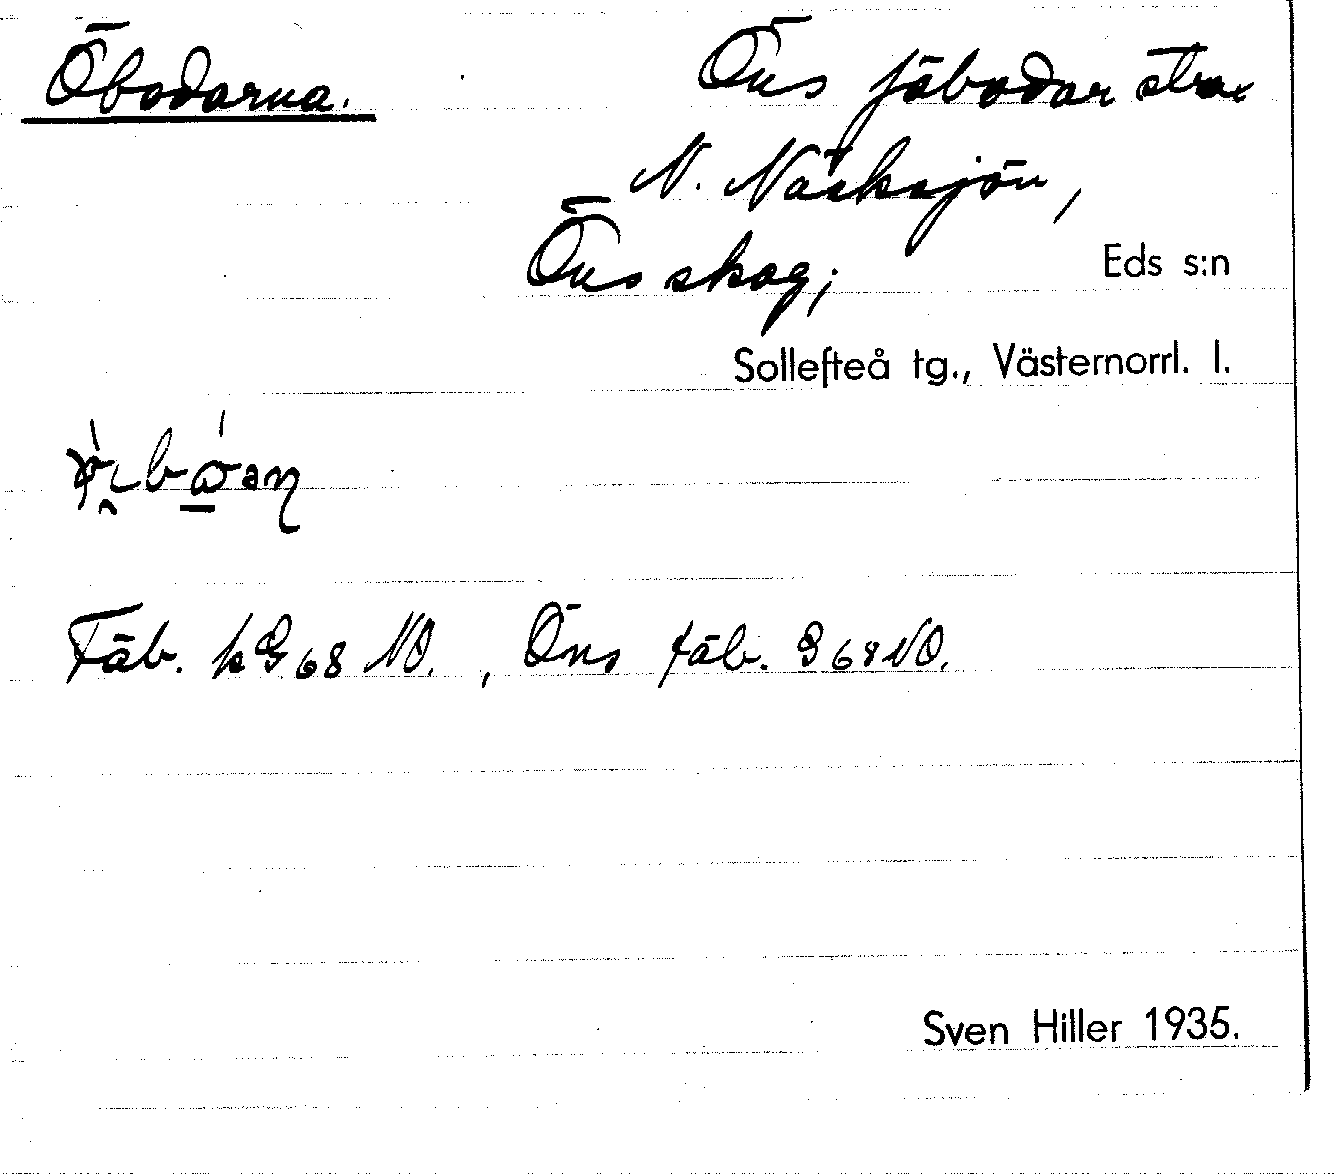 Öbodarna. Öns fäbodar strax
N. Näcksjön,
Öns skog; Eds s:n
Sollefteå tg., Västernorrl. l.
Fäb. hG 68 NO., Öns fäb. G 68 NO.
Sven Hiller 1935.